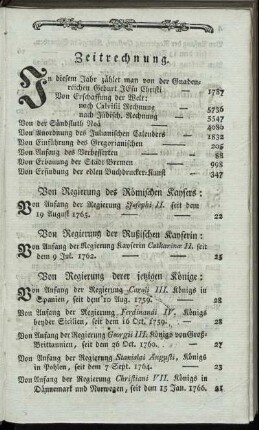 Zeitrechnung.
In diesem Jahr zählet man von der Gnaden-
reichen Geburt JEsu Christi — 1787
Von Erschaffung der Welt:
nach Calvisii Rechnung — 5736
nach Jüdisch. Rechnung — 5547
Von der Sündfluth Noä — 4080
Von Anordnung des Julianischen Calenders 1832
Von Einführung des Gregorianischen — 205
Von Anfang des Verbesserten — 88
Von Erbauung der Stadt Bremen — 998
Von Erfindung der edlen Buchdrucker-Kunst 347
Von Regierung des Römischen Kaysers:
Von Anfang der Regierung Josephi II. seit dem
19 August 1765. — — 22
Von Regierung der Rußischen Kayserin:
Von Anfang der Regierung Kayserin Catharinæ II. seit
dem 9 Jul. 1762. — — 25
Von Regierung derer jetzigen Könige:
Von Anfang der Regierung Caroli III. Königs in
Spanien, seit dem 10 Aug. 1759. — 28
Von Anfang der Regierung Ferdinandi IV. Königs
beyder Sicilien, seit dem 16 Oct. 1759. — 28
Von Anfang der Regierung Georgii III. Königs von Groß-
Brittannien, seit dem 26 Oct. 1760. — 27
Von Anfang der Regierung Stanislai Augusti, Königs
in Pohlen, seit dem 7 Sept. 1764. — 23
Von Anfang der Regierung Christiani VII. Königs in
Dännemark und Norwegen, seit dem 15 Jan. 1766. 21